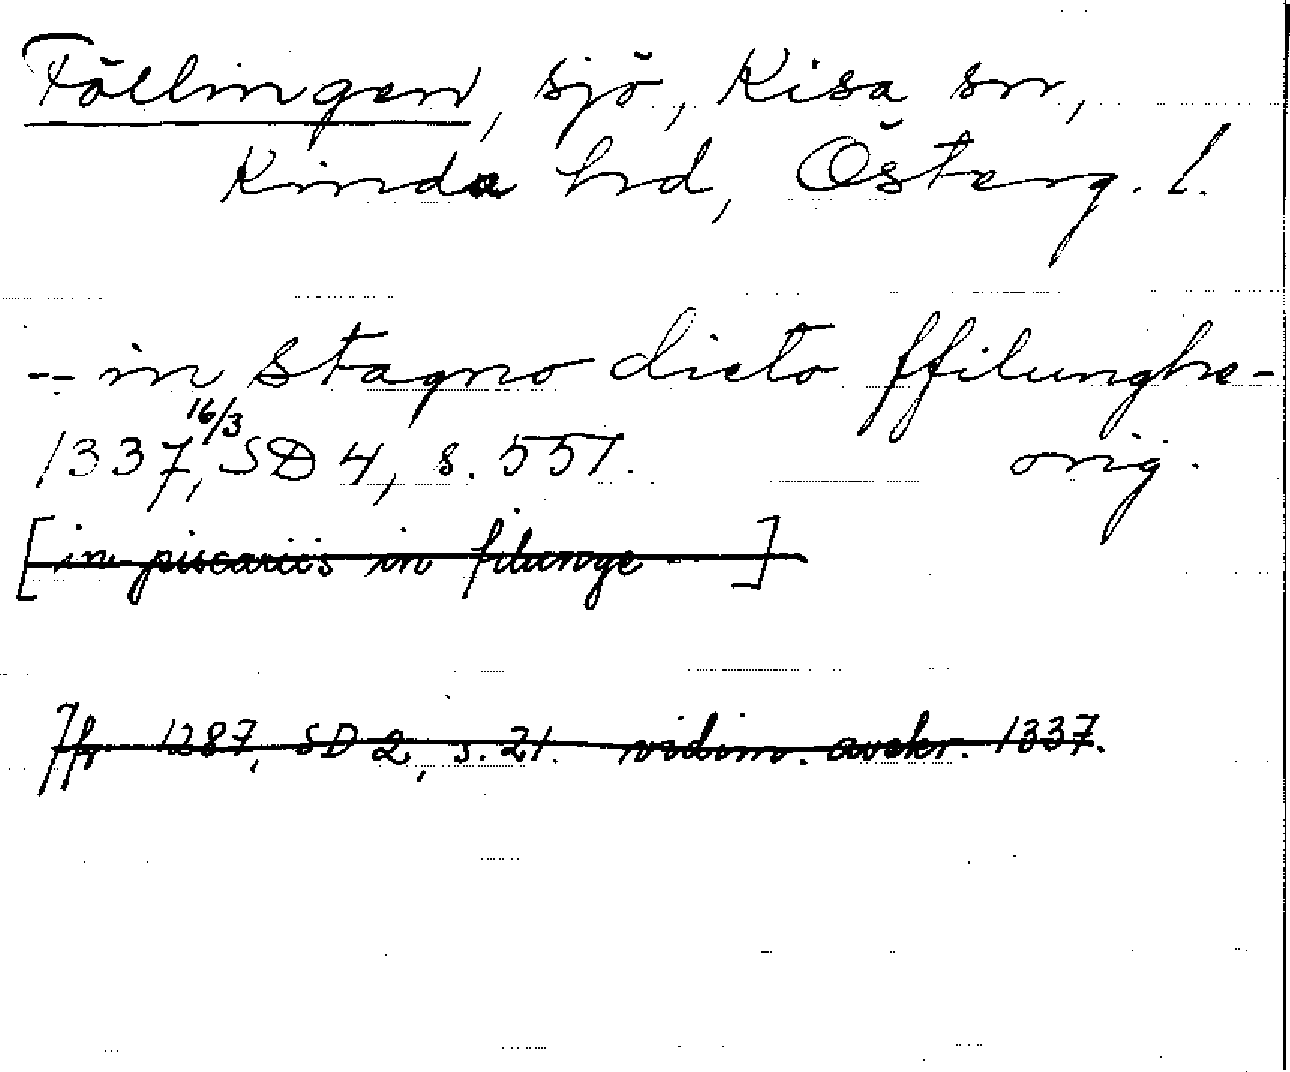 Föllingen, sjö, Kisa sn,
Kinda hd, Österg. l.
-- in stagno dicto ffilunghe -
1337, 16/3 SD 4, s. 551. orig.
[in piscariis in filunge --]
Jfr 1287, SD 2, s. 21. vidim. avskr. 1337.